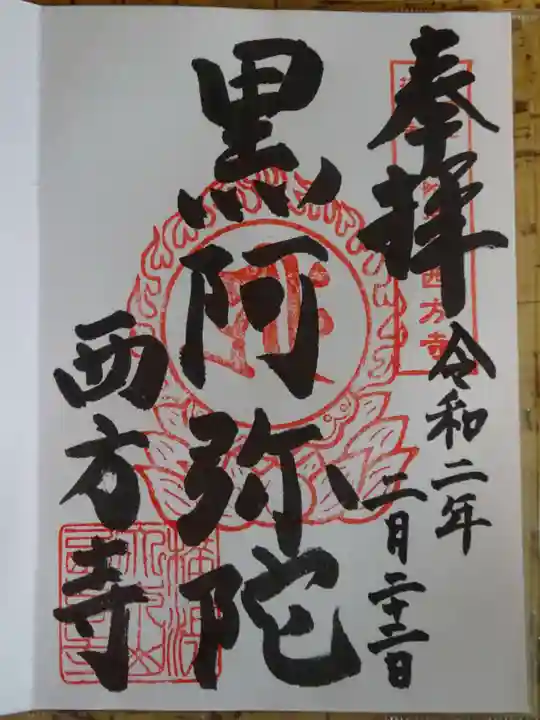 奉拝
令和二年
二月二十三日
黒阿弥陀
西方寺
西方寺